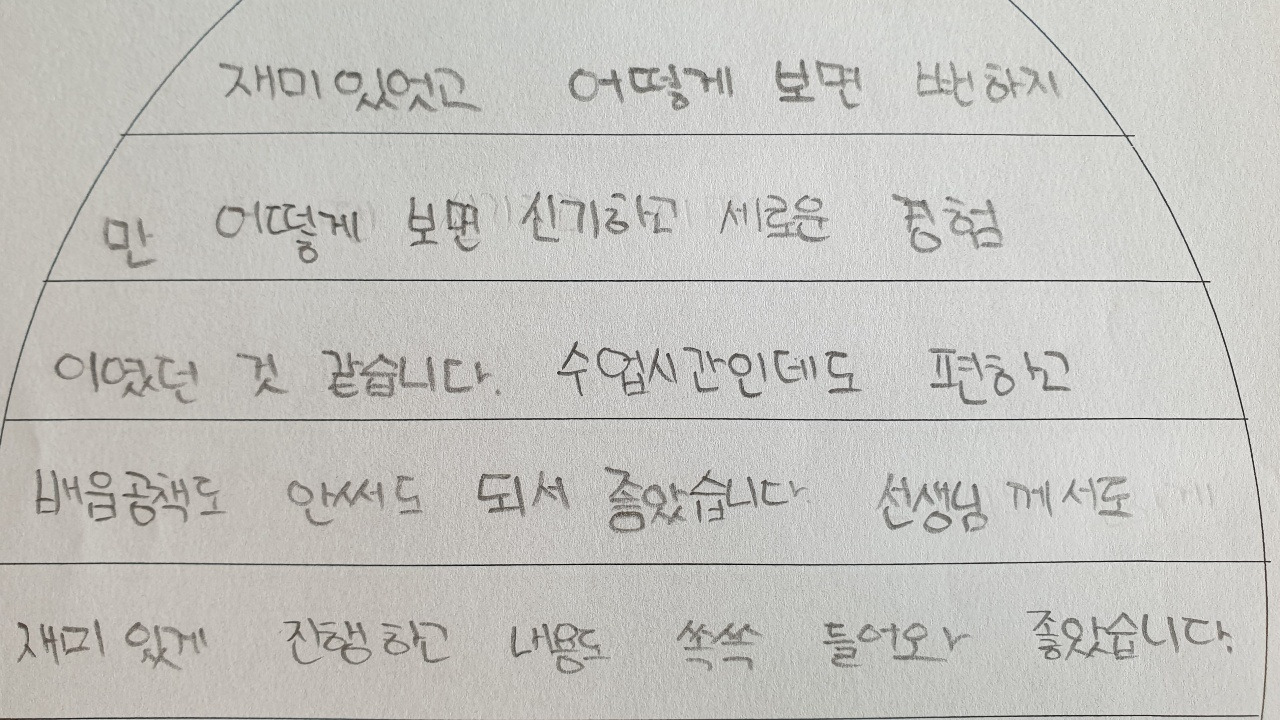 재미있었고 어떻게 보면 뻔하지
만 어떻게 보면 신기하고 세로운 경험
이였던 것 같습니다. 수업시간인데도 편하고
배움공책도 안써도 되서 좋았습니다 선생님께서도
재미있게 진행하고 내용도 쏙쏙 들어오와 좋았습니다.